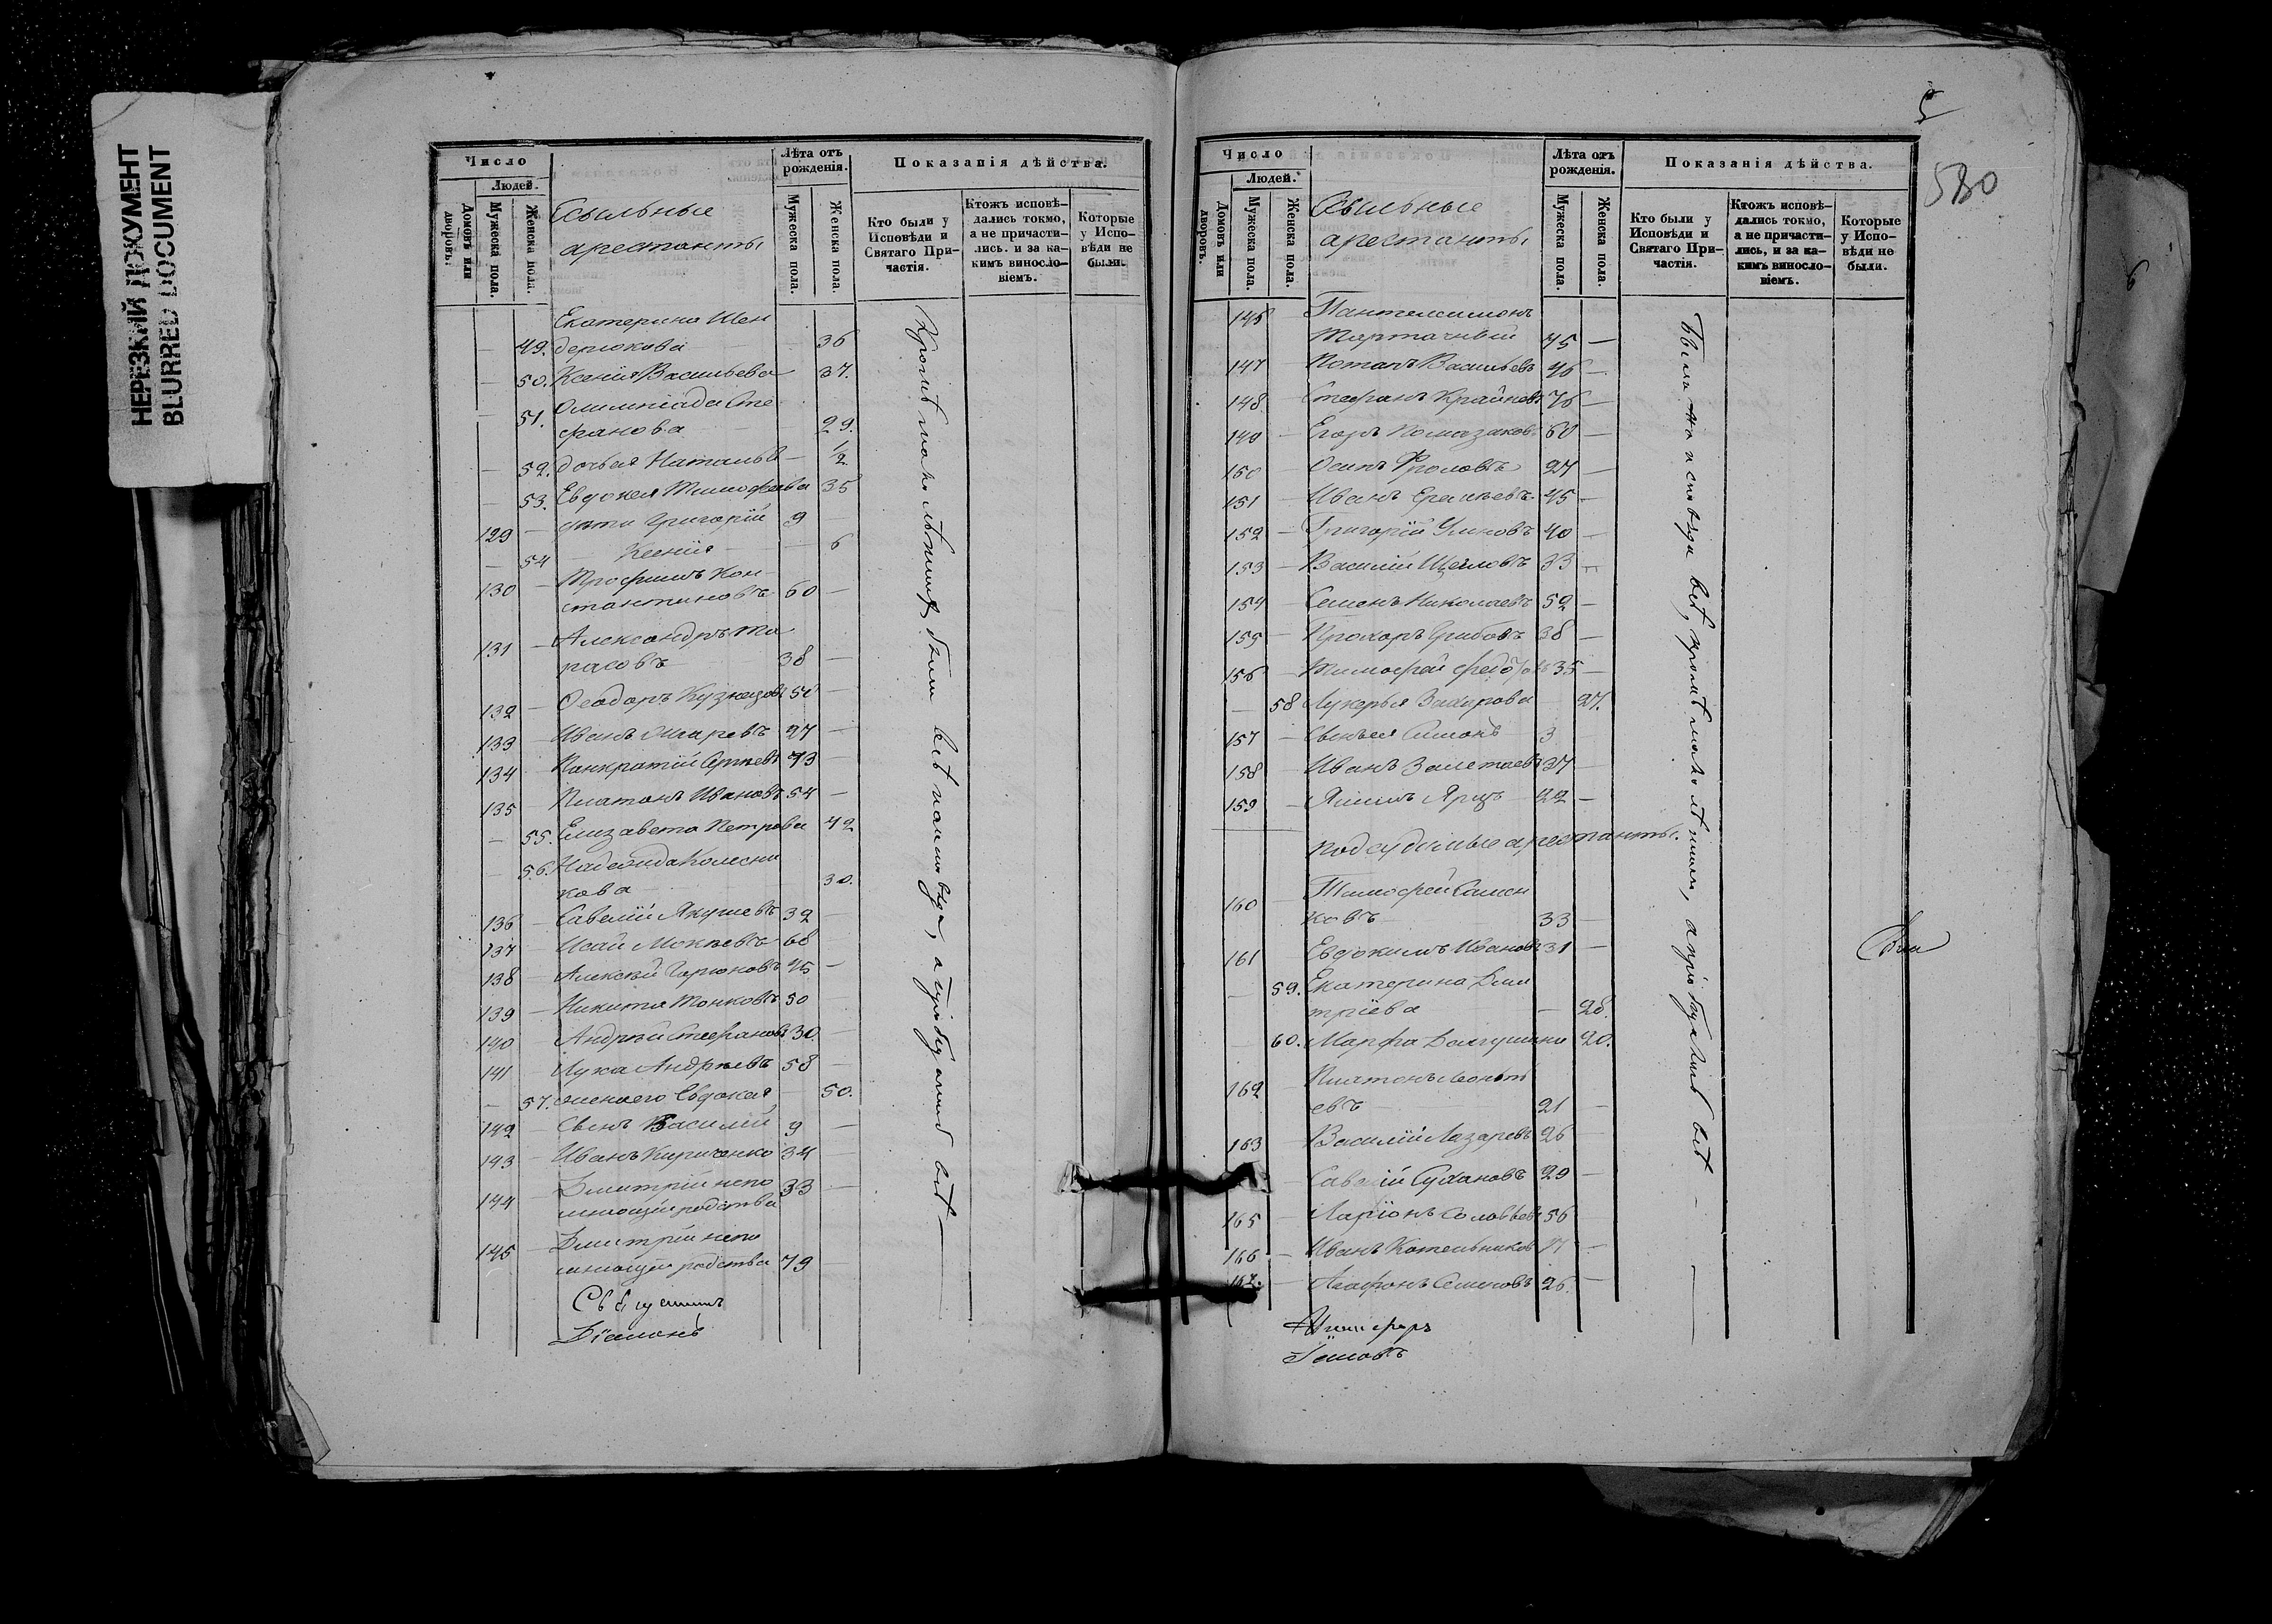 НЕРЕЗКИЙ ДОКУМЕНТ
BLURRED DOCUMENT
Число
Людей.
Домовъ или дворовъ.
Мужеска пола.
Женска пола.
Ссыльные
арестанты
Лѣта отъ рожденія.
Мужеска пола.
Женска пола.
Показанія дѣйства.
Кто были у Исповѣди и Святаго Причастія.
Ктожъ исповѣдались токмо, а не причастились, и за какимъ винословіемъ.
Которые у Исповѣди не были.
Екатерина Шен
49. дерюкова 36
50. Ксенія Васильева 37.
51. Олимпіада Сте
фанова 29.
52. дочь ея Наталья 1/2
53. Евдокія Тимофеева 35
129 дѣти Григорій 9
54 Ксенія 6
130 Трофимъ Кон
стантиновъ 60
131 Александръ Та
расовъ 38
132 Ѳеодоръ Кузнецовъ 50
133 Иванъ 27
134 Панкратій Сергѣевъ 73
135 Платонъ Ивановъ 54
55. Елизавета Петрова 42
56. Надежда Колесни
кова 30.
136 Савелій Якушевъ 32
137 Исай Мокѣевъ 68
138 Алексѣй Горюновъ 45
139 Никита Тонковъ 50
140 Андрей Стефановъ 30.
141 Лука Андреевъ 58
57. жена его Евдокія 50.
142 Сынъ Василій 9
143 Иванъ Кириченко 34
144 Дмитрій непо
мнющій родства 33
145 Дмитрій непо
мнющій родства 79
Діаконъ
Кромѣ малолѣтнихъ были всѣ на исповѣди, а пріобщались всѣ
5
580
Число
Людей.
Домовъ или дворовъ.
Мужеска пола.
Женска пола.
Ссыльные
арестанты
Лѣта отъ рожденія.
Мужеска пола.
Женска пола.
Показанія дѣйства.
Кто были у Исповѣди и Святаго Причастія.
Ктожъ исповѣдались токмо, а не причастились, и за какимъ винословіемъ.
Которые у Исповѣди не были.
146 Пантелеимонъ
45
147 Потапъ Васильевъ 46
148 Стефанъ Крайневъ 76
149 Егоръ Помазаковъ 60
150 Осипъ Фроловъ 27
151 Иванъ 45
152 Григорій 40
153 Василій Щегловъ 33
154 Семенъ Николаевъ 52
155 Прохоръ Грибовъ 38
156 Тимофей 35
58 Лукерья Захарова 27.
157 Сынъ ея Симонъ 3
158 Иванъ 37
159 22
Подсудимые арестанты.
160 Тимофей Самсон
ковъ 33
161 Евдокимъ Ивановъ 31
59. Екатерина Дми
тріева 28.
60. Марфа 20.
162 Платонъ Леонть
евъ 21
163 Василій Лазаревъ 26
Савелій Сухановъ 29
165 Ларіонъ Соловьевъ 56
166 Иванъ Котельников
167. Агафонъ Семеновъ 26
Были на исповѣди всѣ, кромѣ малолѣтнихъ, а пріобщались всѣ